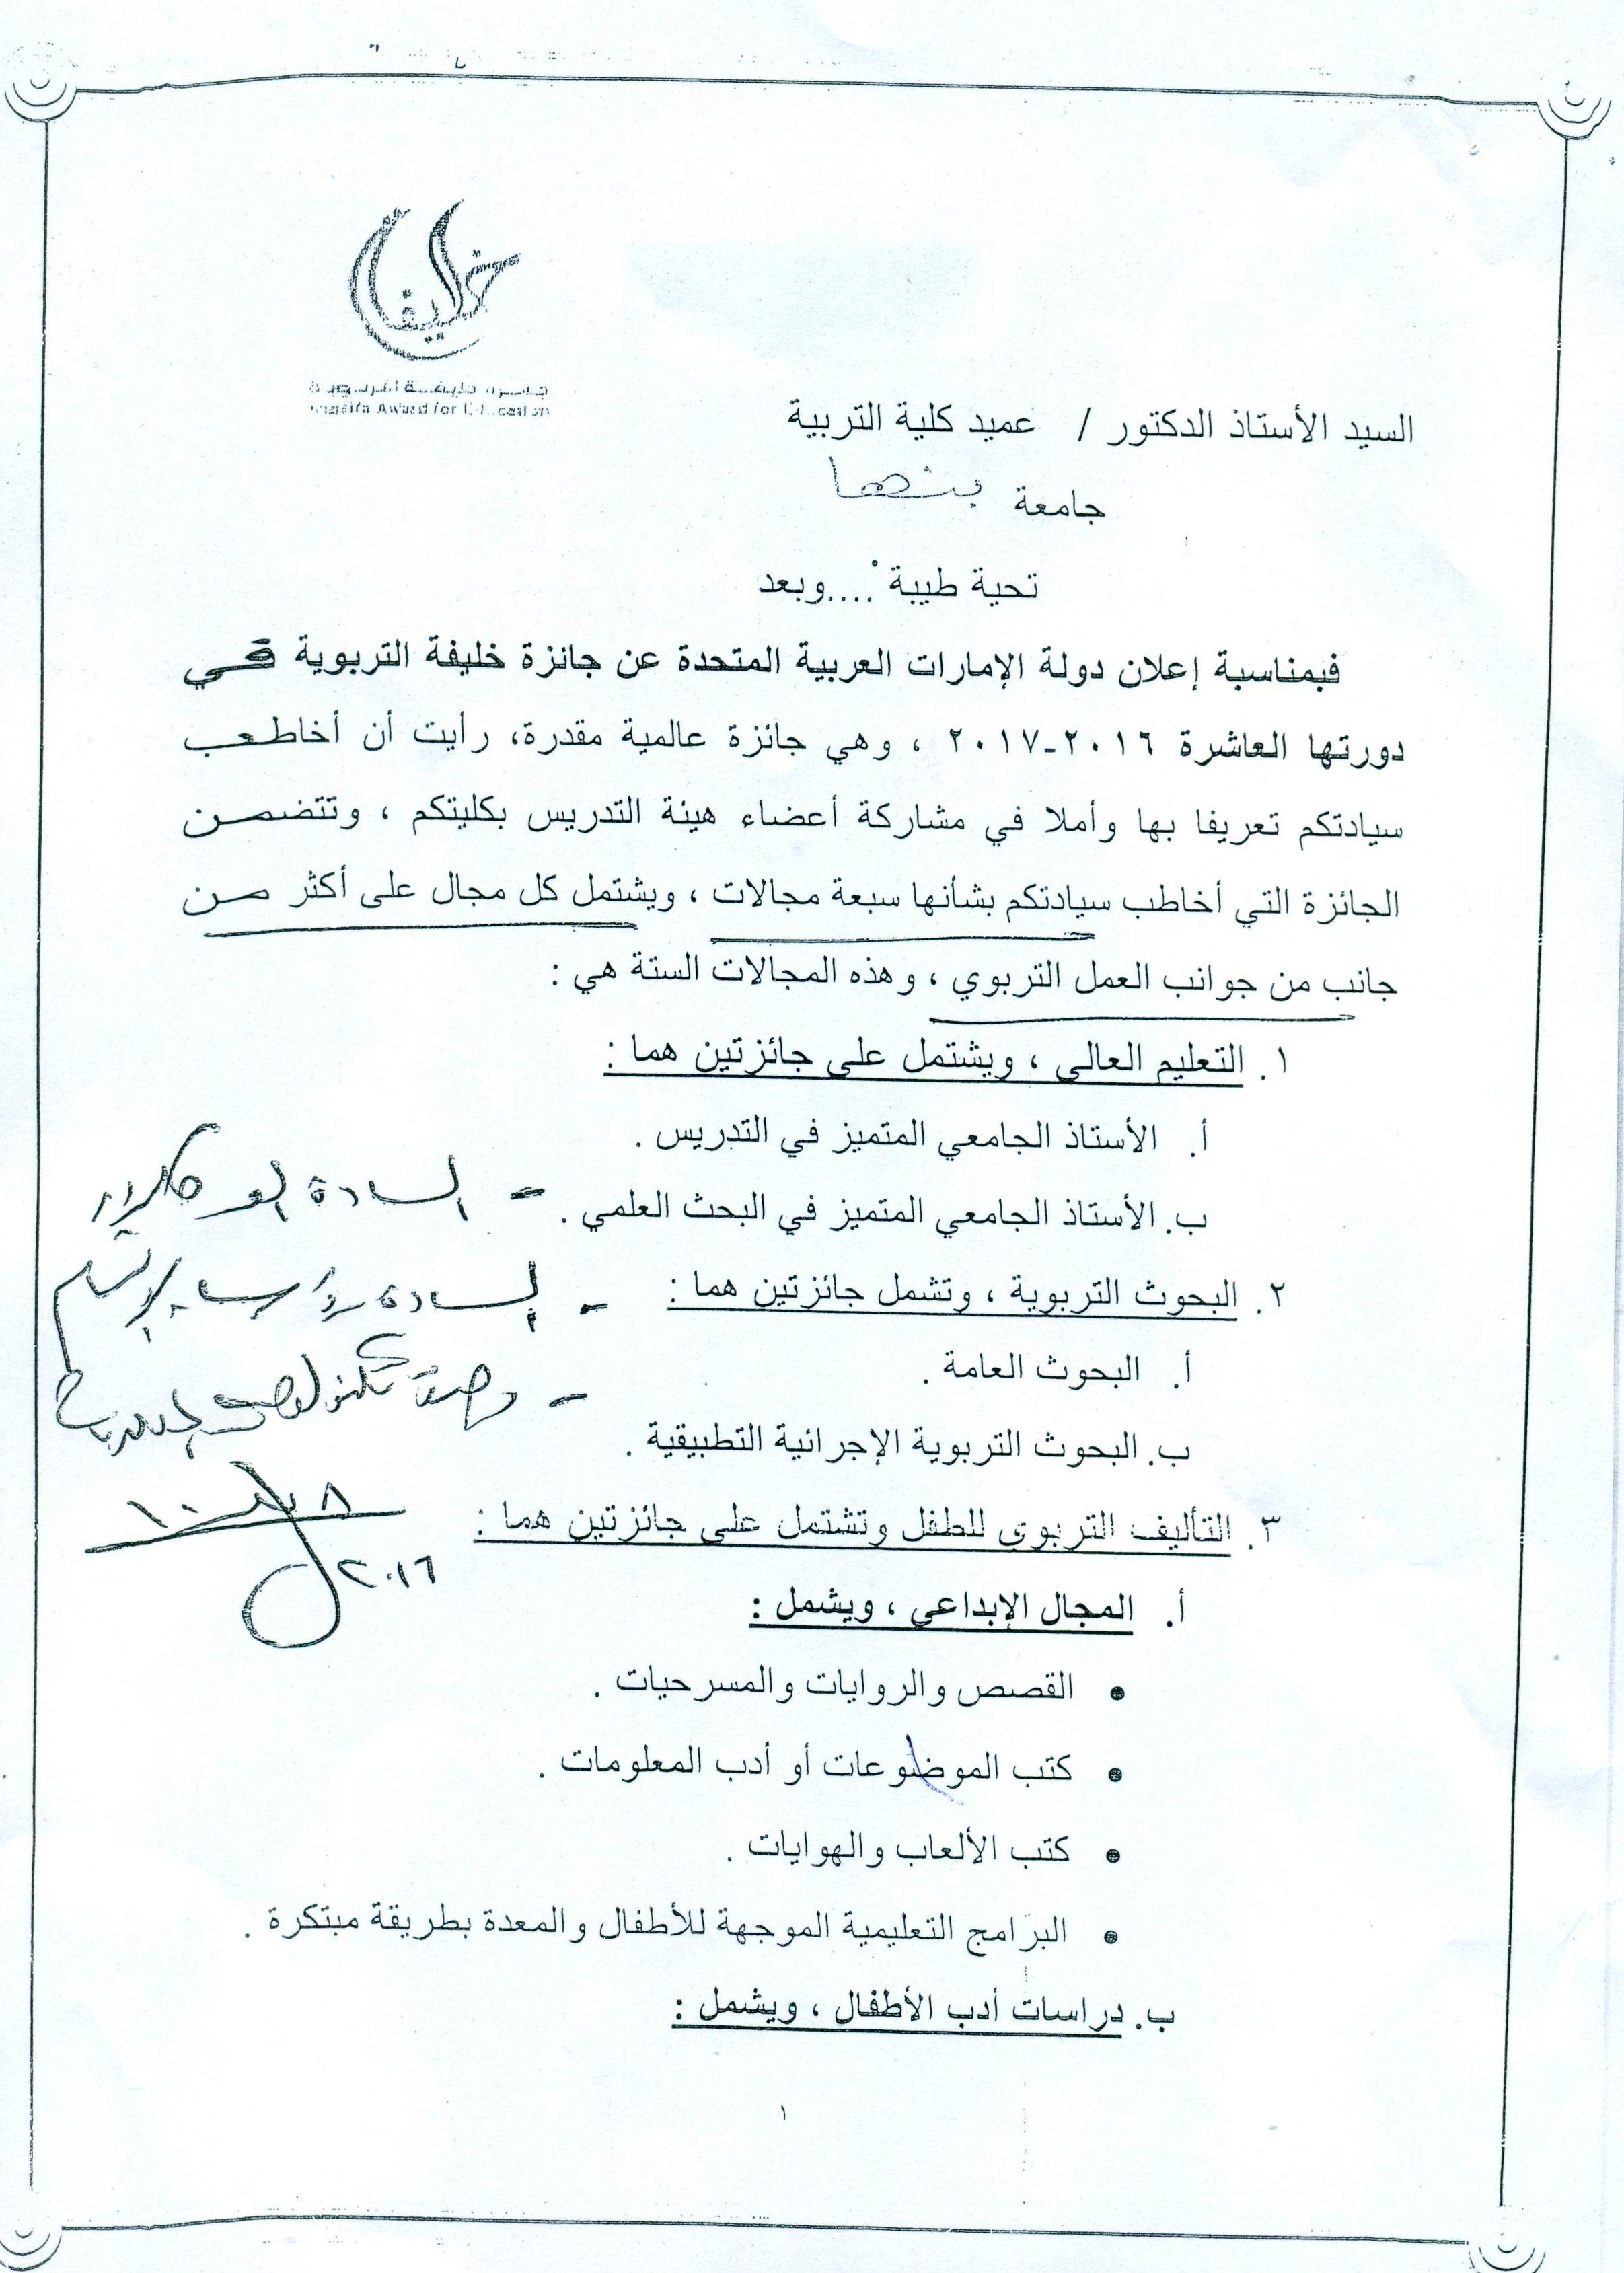 خليفة
جائزة خليفة التربوية
Khalifa Award for Education
السيد الأستاذ الدكتور / عميد كلية التربية
جامعة بنها
تحية طيبة ....وبعد
فبمناسبة إعلان دولة الإمارات العربية المتحدة عن جائزة خليفة التربوية في
دورتها العاشرة ٢٠١٦-٢٠١٧ ، وهي جائزة عالمية مقدرة، رأيت أن أخاطب
سيادتكم تعريفا بها وأملا في مشاركة أعضاء هيئة التدريس بكليتكم ، وتتضمن
الجائزة التي أخاطب سيادتكم بشأنها سبعة مجالات ، ويشتمل كل مجال على أكثر من
جانب من جوانب العمل التربوي ، وهذه المجالات الستة هي :
١. التعليم العالي ، ويشتمل على جائزتين هما :
أ. الأستاذ الجامعي المتميز في التدريس .
ب. الأستاذ الجامعي المتميز في البحث العلمي .
- السادة الوكلاء
٢. البحوث التربوية ، وتشمل جائزتين هما :
- السادة رؤساء الأقسام
أ. البحوث العامة .
- وحدة تكنولوجيا المعلومات
ب. البحوث التربوية الإجرائية التطبيقية .
٣. التأليف التربوي للطفل وتشتمل على جائزتين هما :
٢٠١٦
أ. المجال الإبداعي ، ويشمل :
• القصص والروايات والمسرحيات .
• كتب الموضوعات أو أدب المعلومات .
• كتب الألعاب والهوايات .
• البرامج التعليمية الموجهة للأطفال والمعدة بطريقة مبتكرة .
ب. دراسات أدب الأطفال ، ويشمل :
١